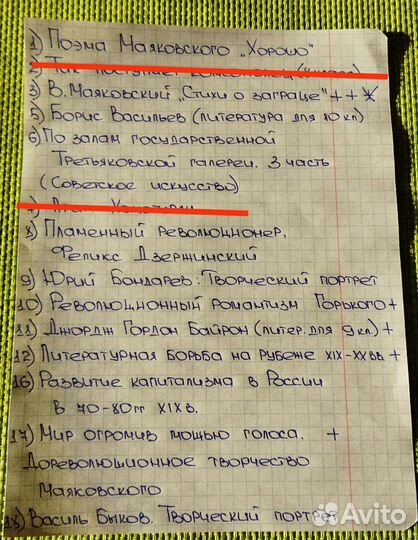 1) Поэма Маяковского „Хорошо"
2) Так поступает
3) В. Маяковский „Стихи о загранце" + +
5) Борис Васильев (литература для 10 кл)
6) По залам государственной
Третьяковской галереи. 3 часть
(Советское искусство)
8) Пламенный революционер.
Феликс Дзержинский
9) Юрий Бондарев: Творческий портрет
10) Революционный романтизм Горького +
11) Джордж Гордон Байрон (литер. для 9 кл) +
12) Литературная борьба на рубеже XIX-XX вв. +
16) Развитие капитализма в России
в 70-80гг XIX в.
17) Мир огромив мощью голоса. +
Дореволюционное творчество
Маяковского
18) Василь Быков. Творческий портрет
Avito